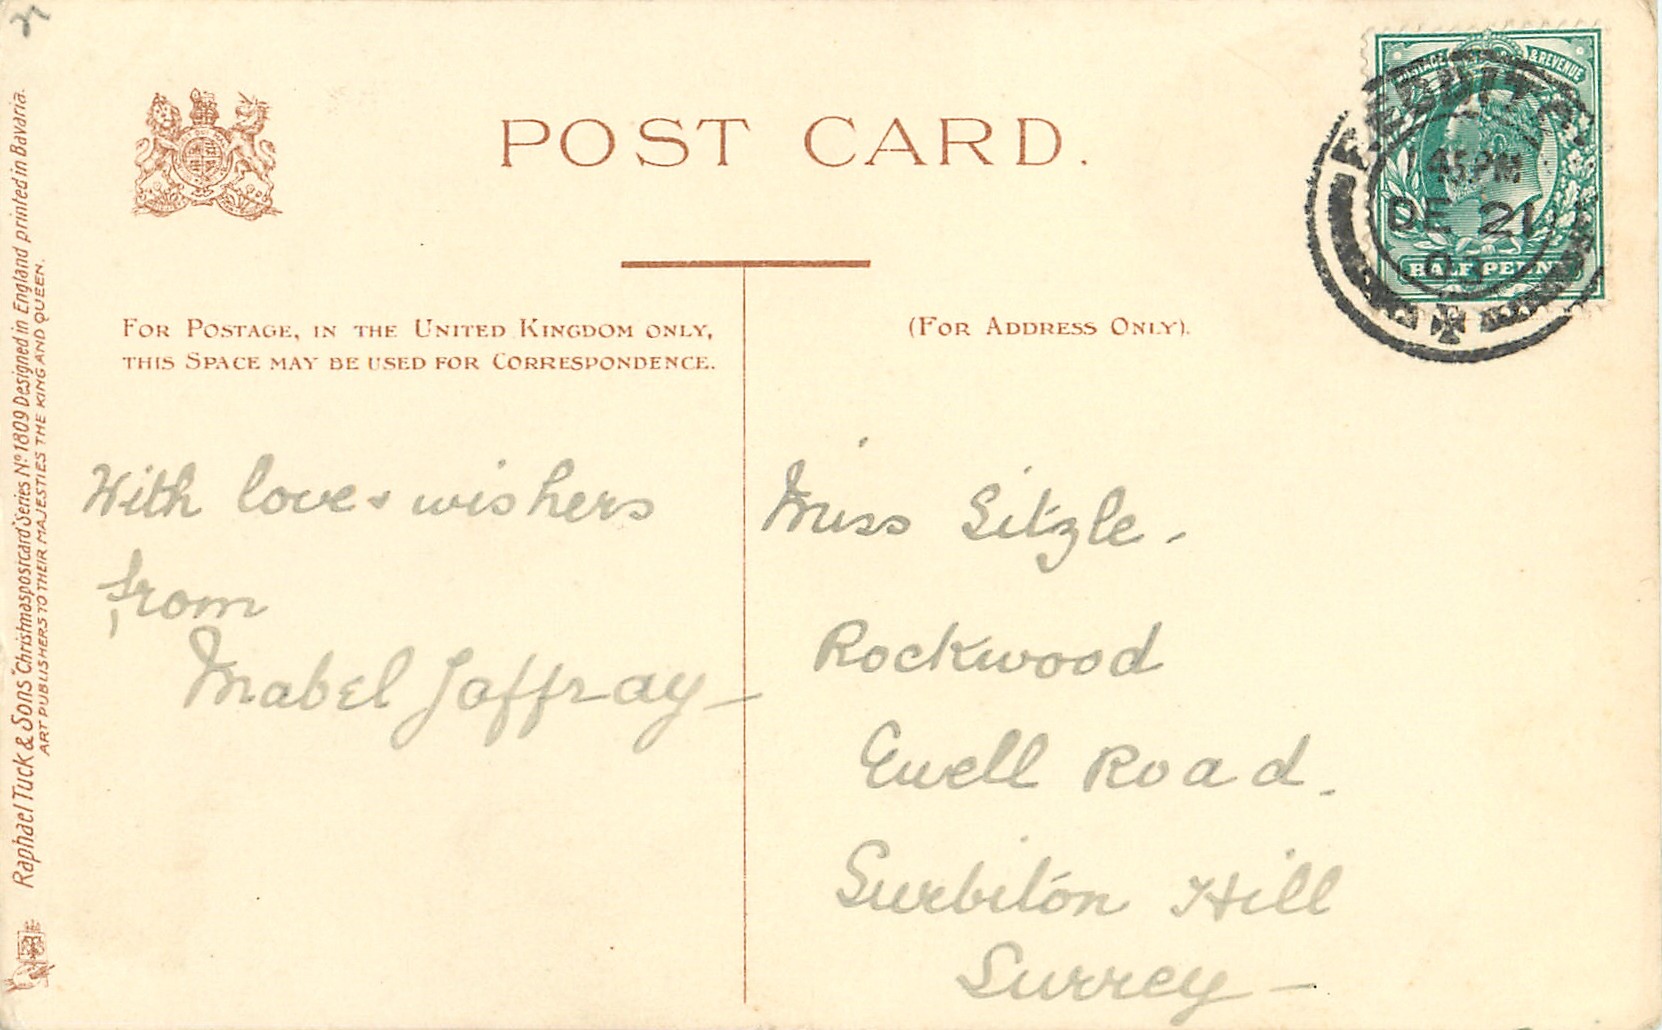 POST CARD.
POSTAGE & REVENUE
45 PM
DE 21
HALF PENNY
FOR POSTAGE, IN THE UNITED KINGDOM ONLY,
THIS SPACE MAY BE USED FOR CORRESPONDENCE.
(FOR ADDRESS ONLY).
With love & wishers
from
Mabel Jaffray –
Miss Sitzle -
Rockwood
Ewell Road.
Surbiton Hill
Surrey –
Raphael Tuck & Sons "Christmas postcard" Series No. 1809 Designed in England printed in Bavaria.
ART PUBLISHERS TO THEIR MAJESTIES THE KING AND QUEEN.